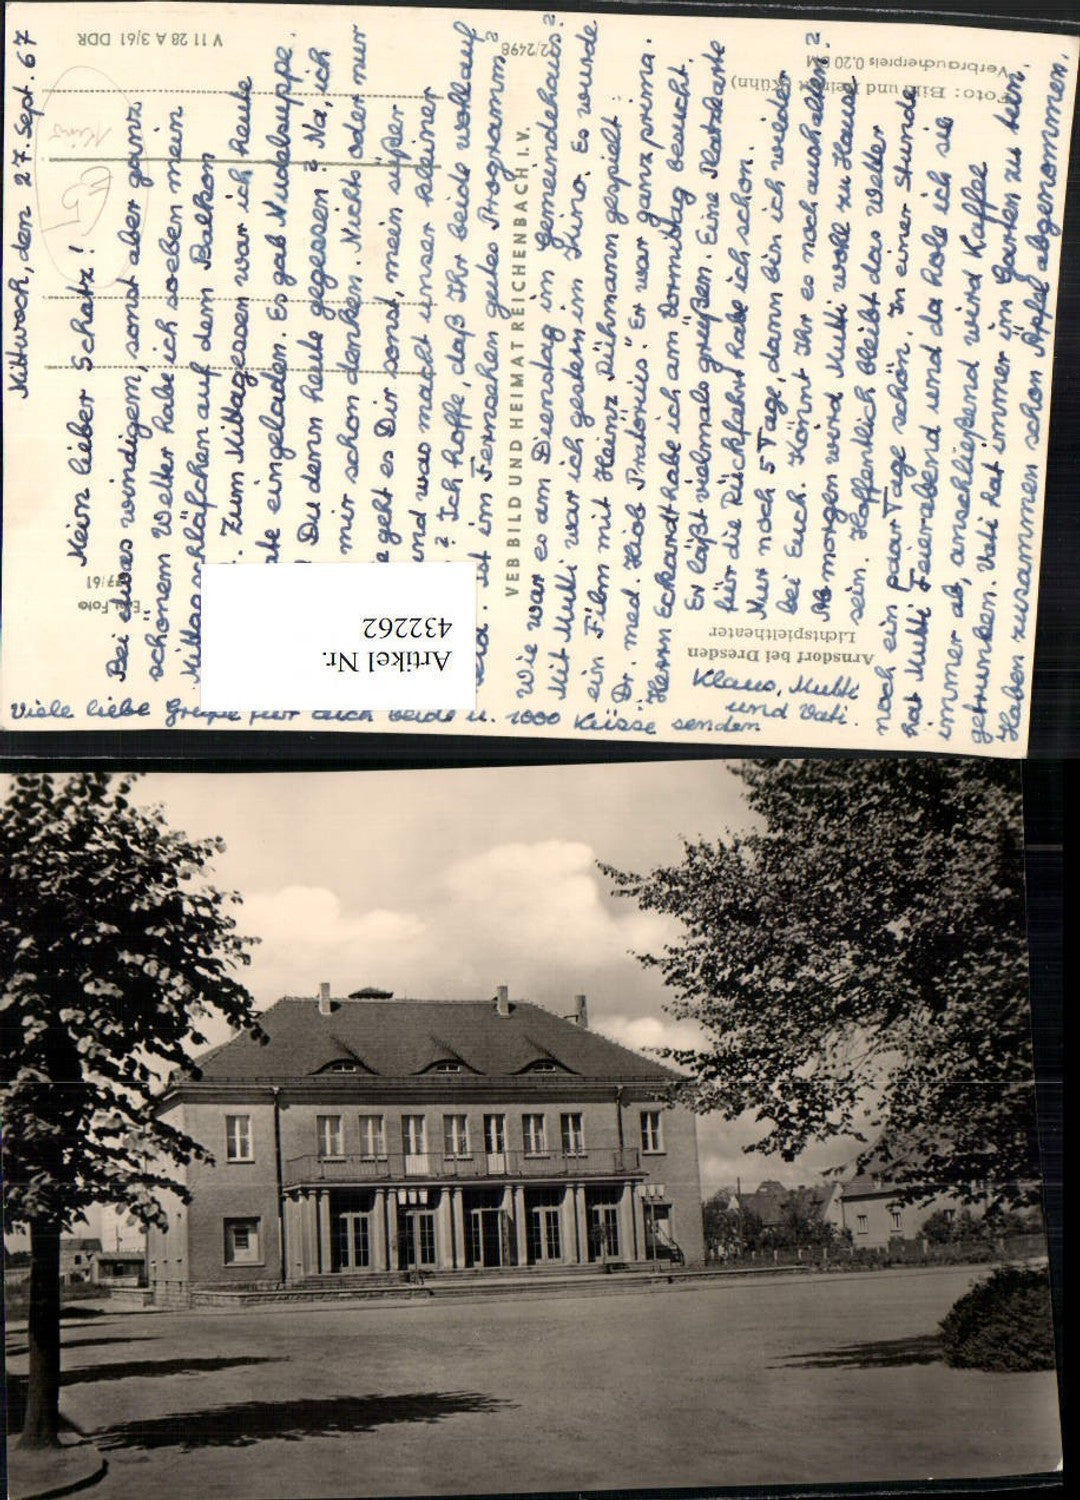 Mittwoch, den 27. Sept. 67
Mein lieber Schatz!
Bei etwas windigem, sonst aber ganz
schönem Wetter habe ich soeben mein
Mittagsschläfchen auf dem Balkon
. Zum Mittagessen war ich heute
eingeladen. Es gab Nudelsuppe.
Du denn heute gegessen? Na, ich
mir schon denken. Nichts oder nur
geht es Dir sonst, mein süßer
und was macht unser kleiner
? Ich hoffe, daß Ihr beide wohlauf
seid. Ist im Fernsehen gutes Programm?
Wie war es am Dienstag im Gemeindehaus?
Mit Mutti war ich gestern im Kino. Es wurde
ein Film mit Heinz Rühmann gespielt:
"Dr. med. Hiob Prätorius." Er war ganz prima.
Herrn Eckardt habe ich am Vormittag besucht.
Er läßt vielmals grüßen. Eine Platzkarte
für die Rückfahrt habe ich schon.
Nur noch 5 Tage, dann bin ich wieder
bei Euch. Könnt Ihr es noch aushalten?
Ab morgen wird Mutti wohl zu Hause
sein. Hoffentlich bleibt das Wetter
noch ein paar Tage schön. In einer Stunde
hat Mutti Feierabend und da hole ich sie
immer ab, anschließend wird Kaffee
getrunken. Vati hat immer im Garten zu tun.
Haben zusammen schon Äpfel abgenommen.
Viele liebe Grüße für Euch beide u. 1000 Küsse senden
Klaus, Mutti
und Vati.
Kino
V 11 28 A 3/61 DDR
Echt Foto
/61
VEB BILD UND HEIMAT REICHENBACH I. V.
12/2498
Arnsdorf bei Dresden
Lichtspieltheater
Foto: Bild und Heimat (Kühn)
Verbraucherpreis 0.20 DM
Artikel Nr.
432262